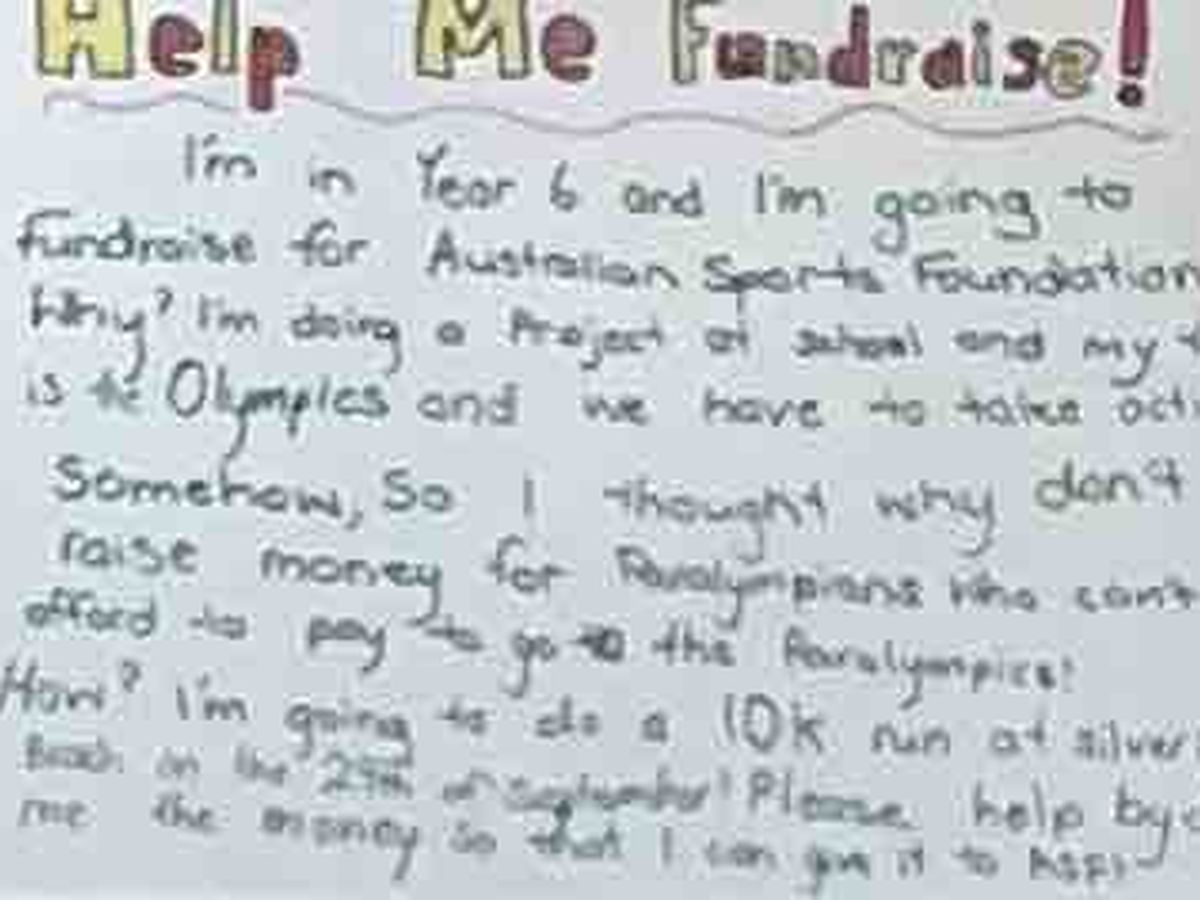 Help Me Fundraise!
I'm in Year 6 and I'm going to
fundraise for Australian Sports Foundation
Why? I'm doing a Project at school and my
is the Olympics and we have to take
Somehow, So I thought why don't
raise money for Paralympians who can't
afford to pay to go to the Paralympics!
How? I'm going to do a 10k run at silver
on the 29th of September! Please help by
me the money so that I can give it to ASF!